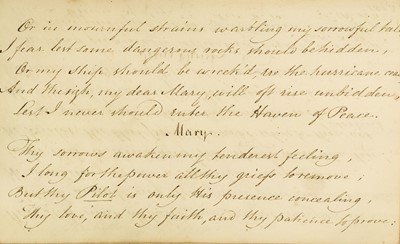 Or in mournful strains warbling my sorrowful tale
I fear lest some dangerous rocks should be hidden,
Or my Ship should be wreck'd, ere the hurricane
And the sigh, my dear Mary, will oft rise unbidden,
Lest I never should enter the Haven of Peace.
Mary.
Thy sorrows awaken my tenderest feeling,
I long for the power all thy griefs to remove;
But thy Pilot is only His presence concealing,
Thy love, and thy faith, and thy patience to prove;